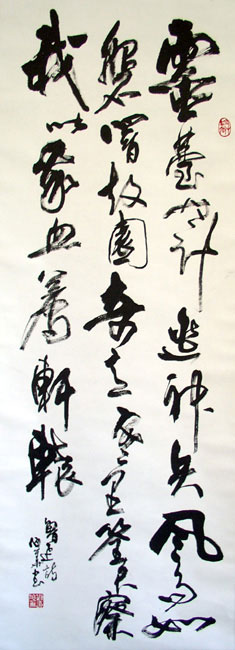 靈臺無計逃神矢風雨如
磐闇故園寄意寒星荃不察
我以我血薦軒轅
魯迅詩
書